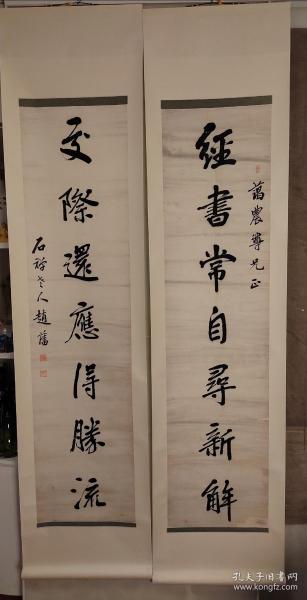 經書常自尋新解
蔼農尊兄正
交際還應得勝流
石禅老人趙藩
孔夫子旧书网
www.kongfz.com